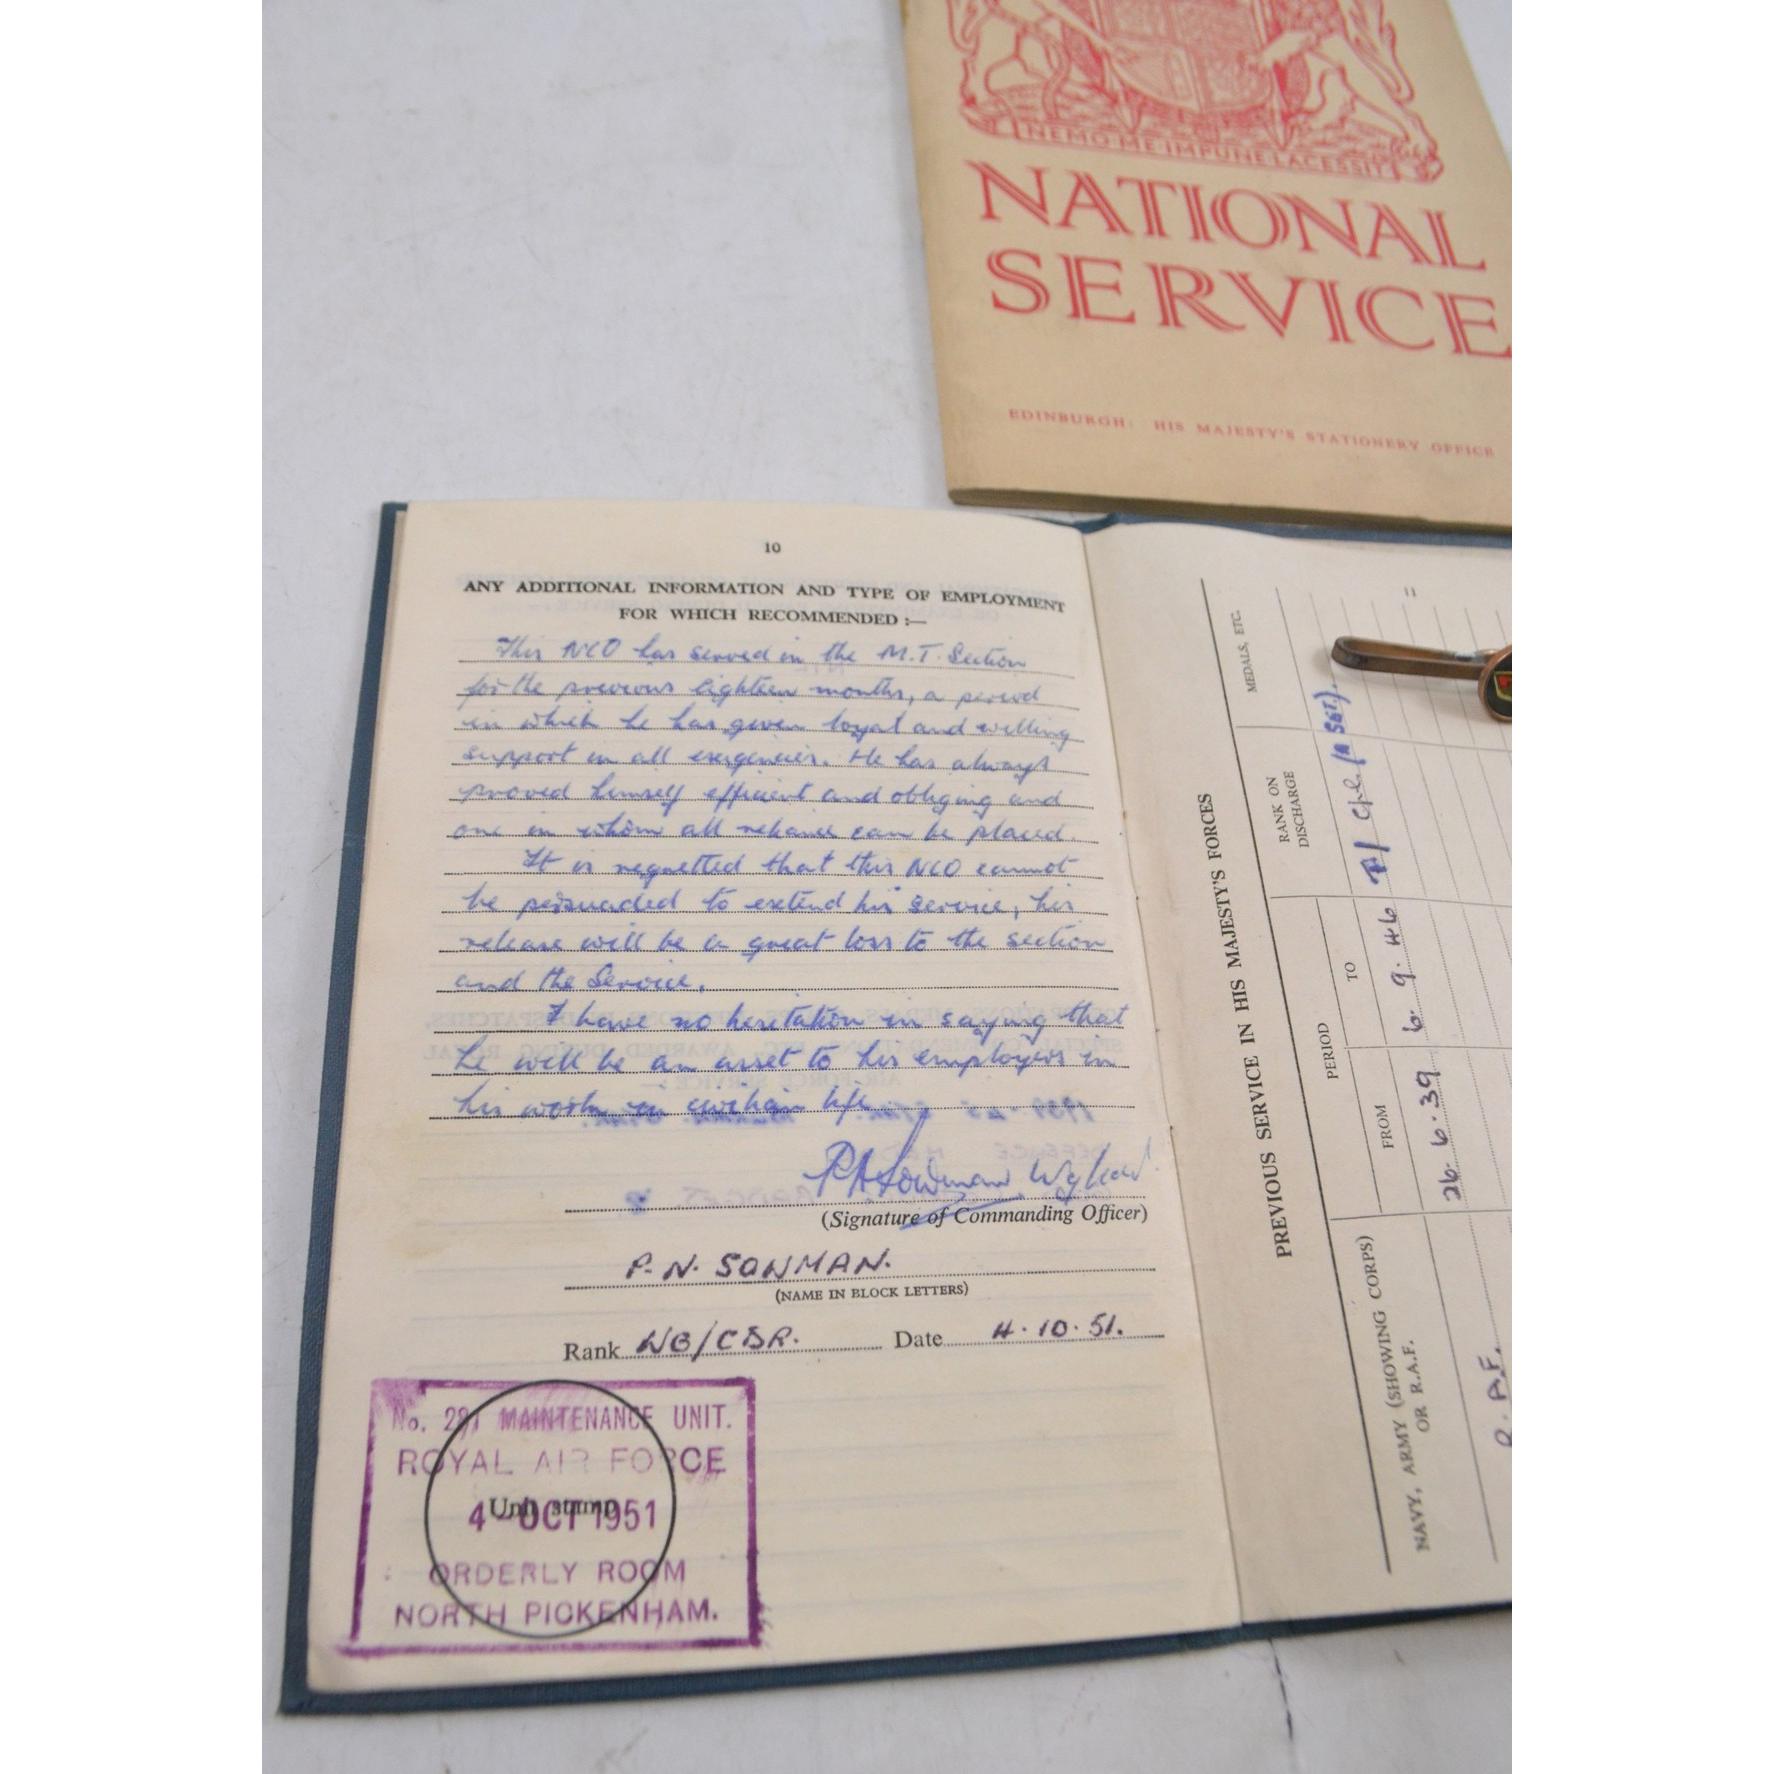 NEMO ME IMPUNE LACESSIT
NATIONAL
SERVICE
EDINBURGH: HIS MAJESTY'S STATIONERY OFFICE
10
ANY ADDITIONAL INFORMATION AND TYPE OF EMPLOYMENT
FOR WHICH RECOMMENDED :—
This NCO has served in the M.T. Section
for the previous eighteen months, a period
in which he has given loyal and willing
support in all exegencies. He has always
proved himself efficient and obliging and
one in whom all reliance can be placed.
It is regretted that this NCO cannot
be persuaded to extend his service, his
release will be a great loss to the section
and the Service.
I have no hesitation in saying that
he will be an asset to his employers in
his work in civilian life
(Signature of Commanding Officer)
P. N. SOWMAN.
(NAME IN BLOCK LETTERS)
Rank WG/CDR. Date 4.10.51.
No. 281 MAINTENANCE UNIT.
ROYAL AIR FORCE
Unit stamp
4-OCT 1951
ORDERLY ROOM
NORTH PICKENHAM.
PREVIOUS SERVICE IN HIS MAJESTY'S FORCES
NAVY, ARMY (SHOWING CORPS)
OR R.A.F.
PERIOD
FROM
TO
RANK ON
DISCHARGE
MEDALS, ETC.
R.A.F.
26.6.39
6.9.46
Cpl (A Sgt).